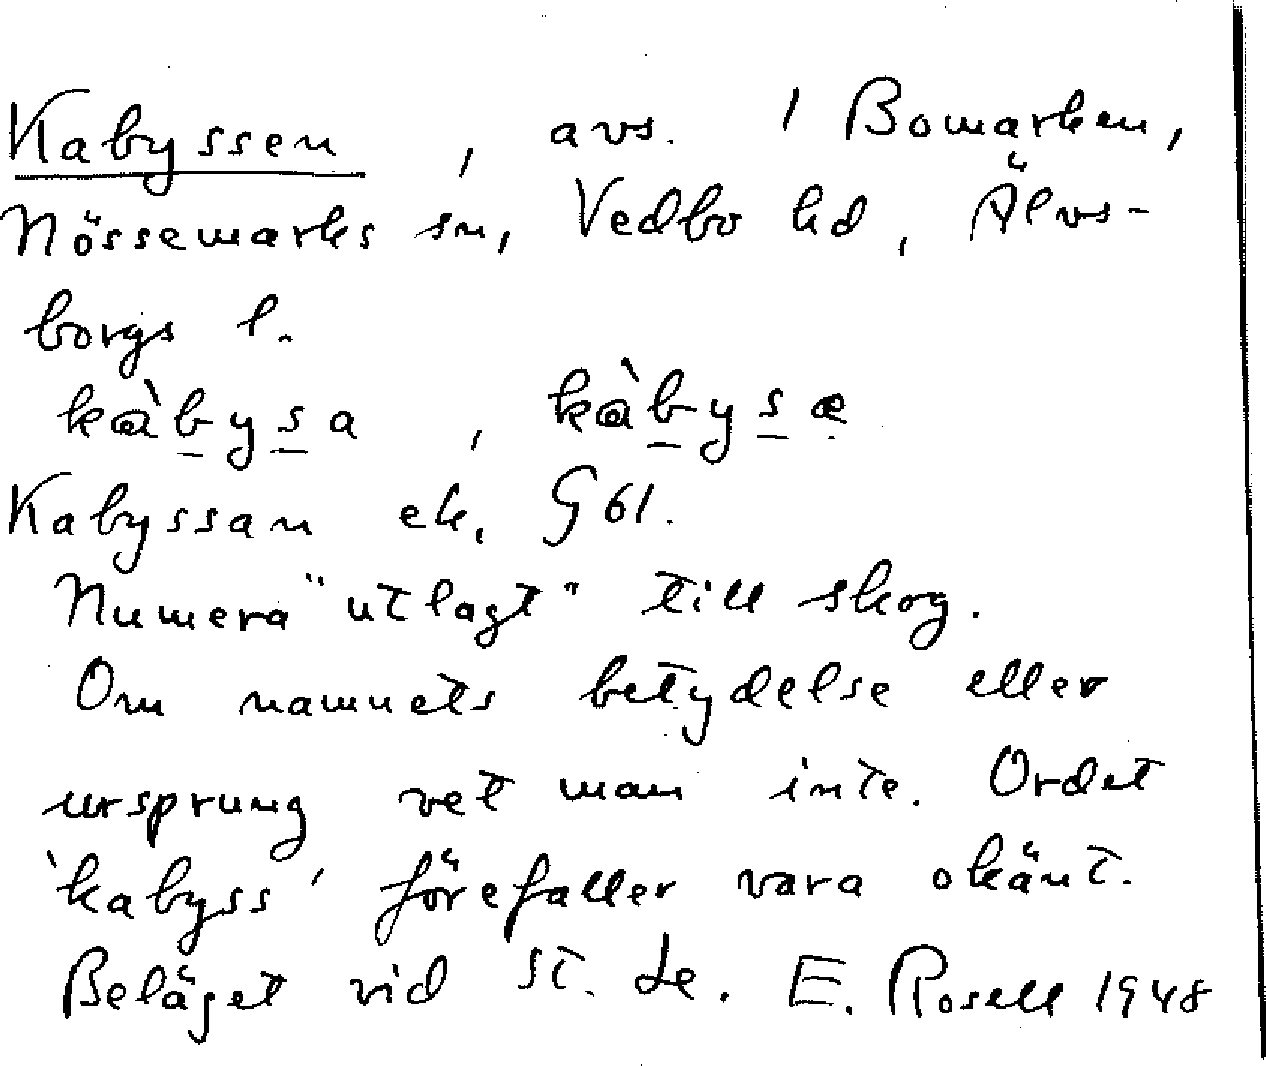 Kabyssen, avs. / Bowarken,
Nössemarks sn, Vedbo hd, Älvs-
borgs l.
kàbysa, kàbysæ
Kabyssan ek. G 61.
Numera "utlagt" till skog.
Om namnets betydelse eller
ursprung vet man inte. Ordet
'kabyss' förefaller vara okänt.
Beläget vid St. Le. E. Rosell 1948